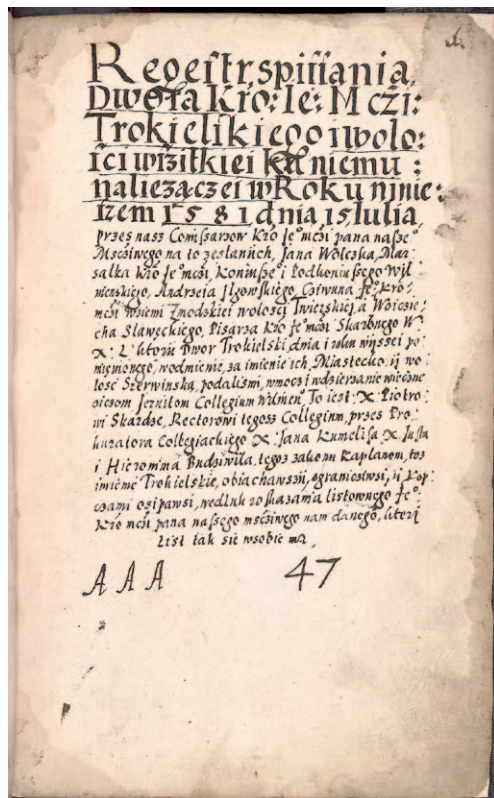 Regestr spisania
Dwora Kro: Ie: M czi:
Trokielskiego i wolo:
sci wszitkiei k niemu :
należączei w Roku ninie:
szem 1581 dnia 15 Iulia
przes nasz Comissarzow Kro Je° mczi pana nasze°
Msczivego na to zesłanich, Jana Wolczka, Mar
sałka Kro Je° mczi, Koniusze° i Podkoniuszego Wil
nienskiego, Andrzeia Ilgowskiego, Cziwuna Je° Kro°
mczi wziemi Zmodzkiei wolosci Twierskiei, a Woicie:
cha Slaweckiego, Pisarza Kro Je° mczi Skarbnego W
X: L: ktorii Dwor Trokielski dnia i roku wyssei po
mienionego, wodmienie, za imienie ich, Miastecko, ij wo
losc Szerwinska, podalismi, wmocz i wdzierzanie wieczne
oiczom Jezuitom Collegium Wilnen. To iest: X Piotro
wi Skardze, Rectorowi tegosz Collegium, przes Pro
kuratora Collegiackiego X: Jana Kumelisa X
i Hieronima Budziwila, tegoz zakonu Kaplanow, toz
imienie Trokielskie, obiachawszii, ograniczıwsi, ij Kop
czami osipawsi, wedluk roskazania listownego Je°
Kro mczi pana naszego msczivego nam danego, ktori
List tak sie wsobie ma
A A A 47